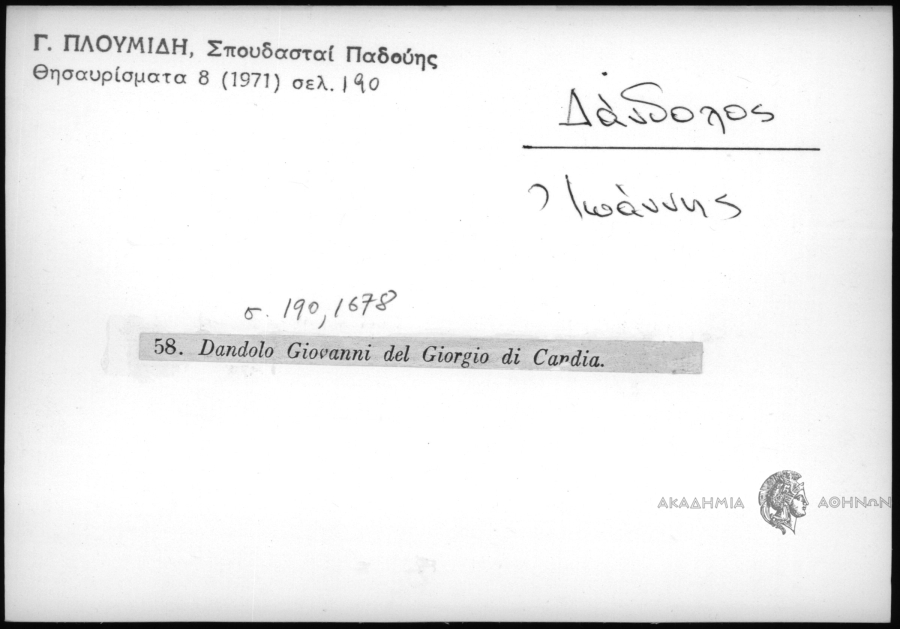 Γ. ΠΛΟΥΜΙΔΗ, Σπουδασταί Παδούης
Θησαυρίσματα 8 (1971) σελ. 190
Δάνδολος
Ἰωάννης
σ. 190, 1678
58. Dandolo Giovanni del Giorgio di Candia.
ΑΚΑΔΗΜΙΑ ΑΘΗΝΩΝ